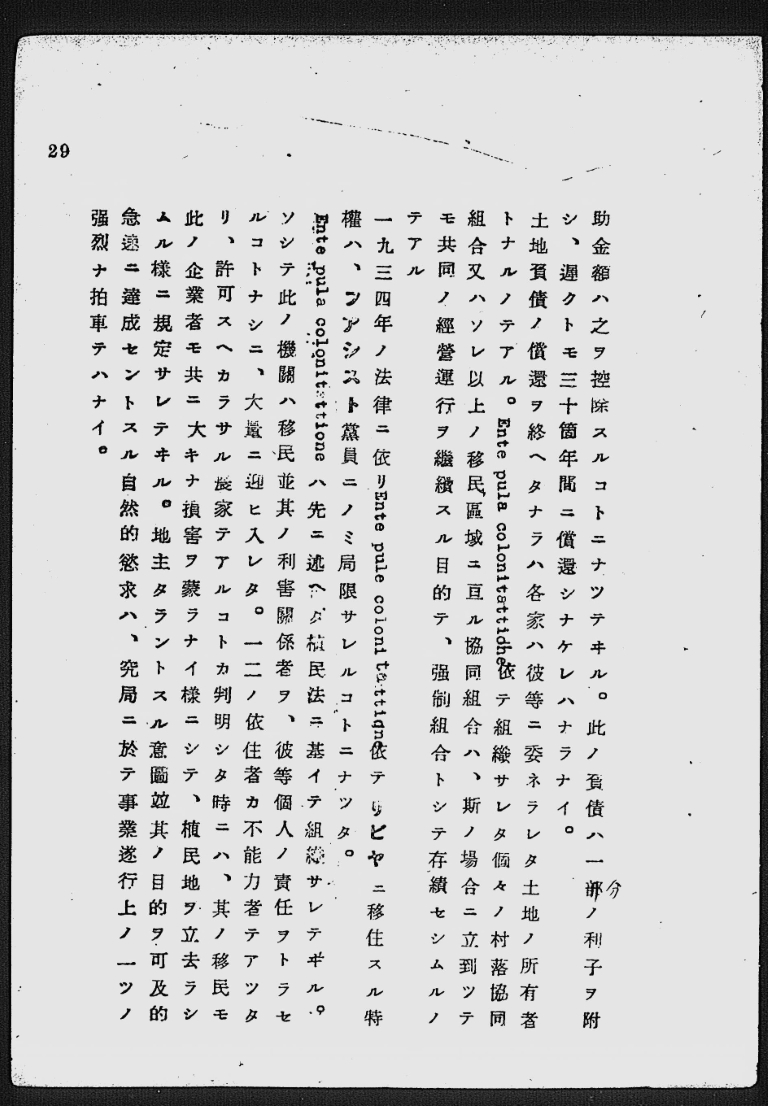 29
助金額ハ之ヲ控除スルコトニナツテヰル。此ノ負債ハ一部分ノ利子ヲ附
シ、遲クトモ三十箇年間ニ償還シナケレハナラナイ。
土地負債ノ償還ヲ終ヘタナラハ各家ハ彼等ニ委ネラレタ土地ノ所有者
トナルノテアル。Ente pula colonitattidhe依テ組織サレタ個々ノ村落協同
組合又ハソレ以上ノ移民區域ニ亘ル協同組合ハ、斯ノ場合ニ立到ツテ
モ共同ノ經營運行ヲ繼續スル目的テ、强制組合トシテ存續セシムルノ
テアル
一九三四年ノ法律ニ依リEnte pule colonitattiqne依テリビヤニ移住スル特
權ハ、フアシスト黨員ニノミ局限サレルコトニナツタ。
Ente pula colonitattione ハ先ニ述ヘタ植民法ニ基イテ組織サレテヰル。
ソシテ此ノ機關ハ移民並其ノ利害關係者ヲ、彼等個人ノ責任ヲトラセ
ルコトナシニ、大量ニ迎ヒ入レタ。一二ノ依住者カ不能力者テアツタ
リ、許可スヘカラサル農家テアルコトカ判明シタ時ニハ、其ノ移民モ
此ノ企業者モ共ニ大キナ損害ヲ蒙ラナイ様ニシテ、植民地ヲ立去ラシ
ムル様ニ規定サレテヰル。地主タラントスル意圖竝其ノ目的ヲ可及的
急速ニ達成セントスル自然的慾求ハ、究局ニ於テ事業遂行上ノ一ツノ
强烈ナ拍車テハナイ。